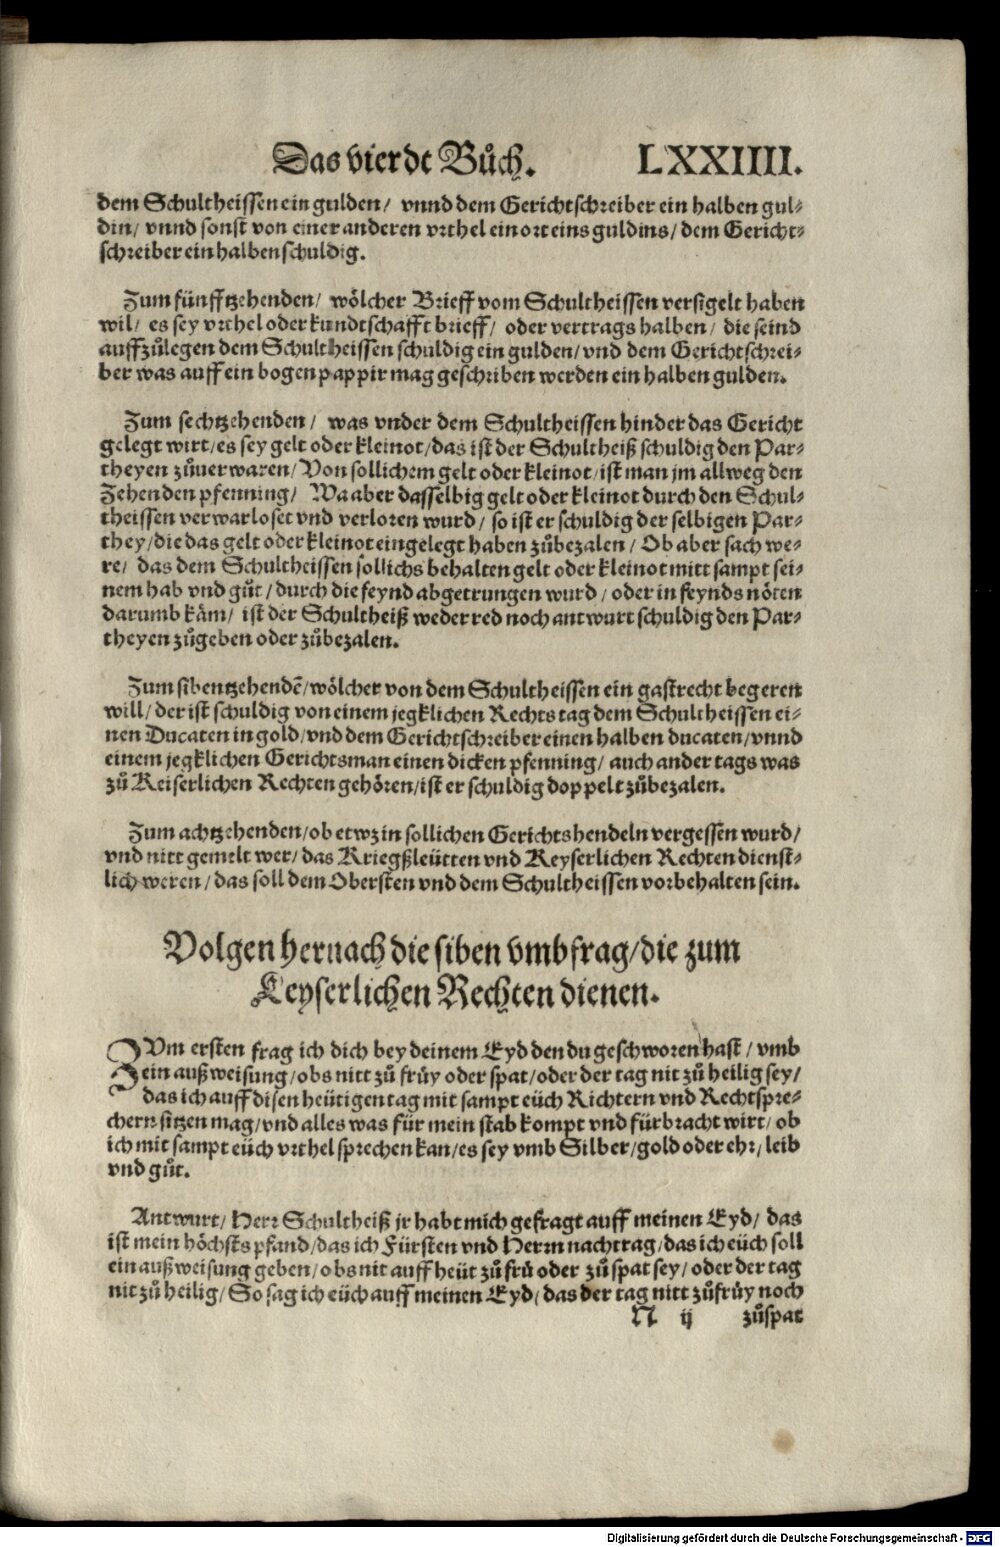 Das vierdt Bůch. LXXIIII.
dem Schultheissen ein gulden / vnnd dem Gerichtschreiber ein halben gul-
din / vnnd sonst von einer anderen vrthel ein ort eins guldins / dem Gericht-
schreiber ein halben schuldig.
Zum fünfftzehenden / wölcher Brieff vom Schultheissen versigelt haben
wil / es sey vrthel oder kundtschafft brieff / oder vertrags halben / die seind
auffzůlegen dem Schultheissen schuldig ein gulden / vnd dem Gerichtschrei-
ber was auff ein bogen pappir mag geschriben werden ein halben gulden.
Zum sechtzehenden / was vnder dem Schultheissen hinder das Gericht
gelegt wirt / es sey gelt oder kleinot / das ist der Schultheiß schuldig den Par-
theyen zůuerwaren / Von sollichem gelt oder kleinot / ist man jm allweg den
Zehenden pfenning / Wa aber dasselbig gelt oder kleinot durch den Schul-
theissen verwarloset vnd verloren wurd / so ist er schuldig der selbigen Par-
they / die das gelt oder kleinot eingelegt haben zůbezalen / Ob aber sach we-
re / das dem Schultheissen sollichs behalten gelt oder kleinot mitt sampt sei-
nem hab vnd gůt / durch die feynd abgetrungen wurd / oder in feynds nöten
darumb käm / ist der Schultheiß weder red noch antwurt schuldig den Par-
theyen zůgeben oder zůbezalen.
Zum sibentzehendē / wölcher von dem Schultheissen ein gastrecht begeren
will / der ist schuldig von einem jegklichen Rechts tag dem Schultheissen ei-
nen Ducaten in gold / vnd dem Gerichtschreiber einen halben ducaten / vnnd
einem jegklichen Gerichtsman einen dicken pfenning / auch ander tags was
zů Keiserlichen Rechten gehören / ist er schuldig doppelt zůbezalen.
Zum achtzehenden / ob etwz in sollichen Gerichtshendeln vergessen wurd /
vnd nitt gemelt wer / das Kriegßleütten vnd Keyserlichen Rechten dienst-
lich weren / das soll dem Obersten vnd dem Schultheissen vorbehalten sein.
Volgen hernach die siben vmbfrag / die zum
Keyserlichen Rechten dienen.
ZVm ersten frag ich dich bey deinem Eyd den du geschworen hast / vmb
ein außweisung / obs nitt zů früy oder spat / oder der tag nit zů heilig sey /
das ich auff disen heütigen tag mit sampt eüch Richtern vnd Rechtspre-
chern sitzen mag / vnd alles was für mein stab kompt vnd fürbracht wirt / ob
ich mit sampt eüch vrthel sprechen kan / es sey vmb Silber / gold oder ehr / leib
vnd gůt.
Antwurt / Herr Schultheiß jr habt mich gefragt auff meinen Eyd / das
ist mein höchsts pfand / das ich Fürsten vnd Herrn nachtrag / das ich eüch soll
ein außweisung geben / obs nit auff heüt zů frü oder zů spat sey / oder der tag
nit zů heilig / So sag ich eüch auff meinen Eyd / das der tag nitt zů früy noch
N ij zů spat
Digitalisierung gefördert durch die Deutsche Forschungsgemeinschaft - DFG